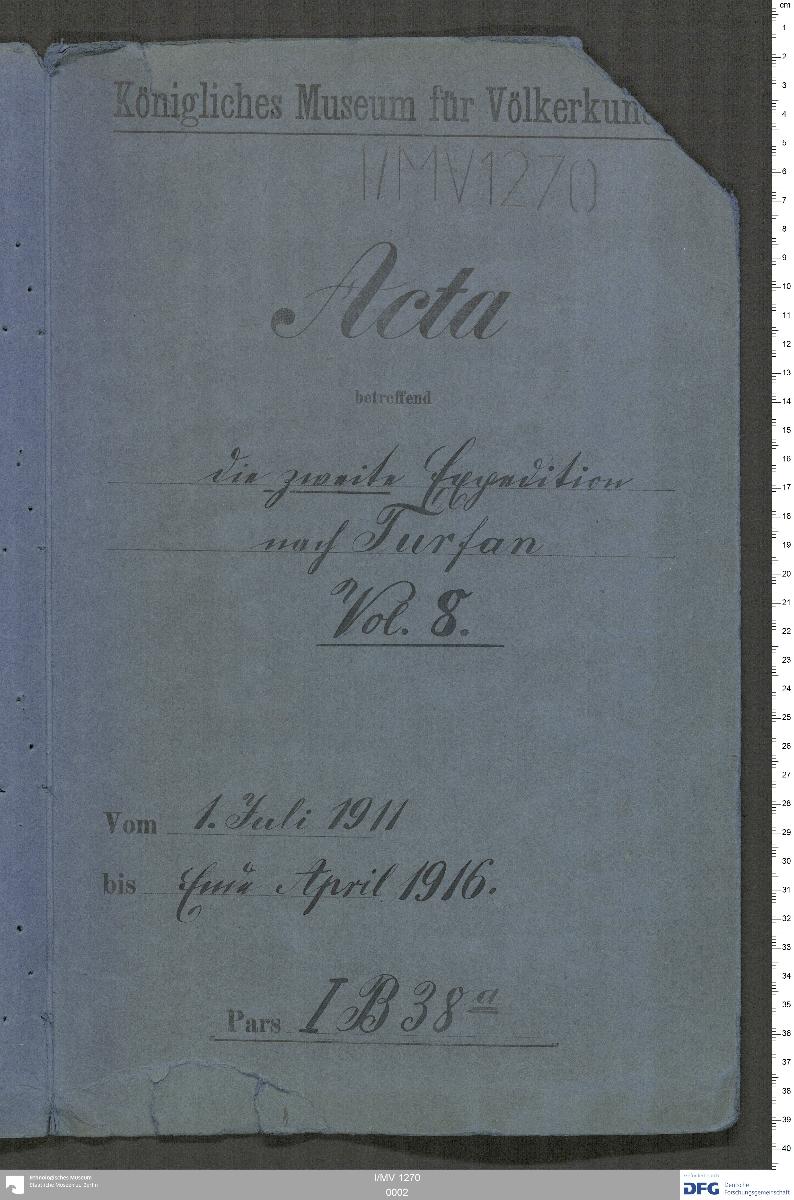 Königliches Museum für Völkerkun
I/MV 1270
Acta
betreffend
die zweite Expedition
nach Turfan
Vol. 8.
Vom 1. Juli 1911
bis Ende April 1916.
Pars I B 38 a
Ethnologisches Museum
Staatliche Museen zu Berlin
I/MV 1270
0002
DFG Deutsche
Forschungsgemeinschaft
cm
1
2
3
4
5
6
7
8
9
10
11
12
13
14
15
16
17
18
19
20
21
22
23
24
25
26
27
28
29
30
31
32
33
34
35
36
37
38
39
40